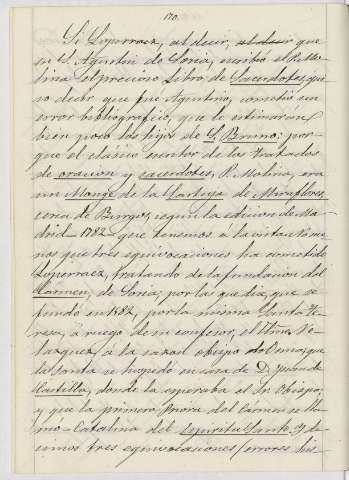 170.
Si Loperraez, al decir, al decir que
en S. Agustin de Soria, escribió el P. Mo-
lina el precioso Libro, de Sacerdotes, qui-
so decir que fué Agustino, cometió un
error bibliografico, que le estimarán
bien poco los hijos de S. Bruno; por-
que el clásico escritor de los tratados
de oracion y sacerdotes, P. Molina, era
un Monge de la Cartuja de Miraflores
cerca de Burgos, segun la edicion de Ma-
drid - 1782 - que tenemos á la vista. No me-
nos que tres equivocaciones ha cometido
Loperraez, tratando de la fundacion del
Carmen, de Soria; por las que dice, que se
fundó en 1582, por la misma Santa Te-
resa, á ruego de su confesor, el Ilmo. Ve-
lazquez, á la sazon obispo de Osma; que
la Santa se hospedó en casa de D. Juan de
Castilla, donde la esperaba el Sr. Obispo;
y que la primera Priora del Carmen se lla-
mó - Catalina del Espiritu Santo. Y de-
cimos tres equivocaciones / errores his-